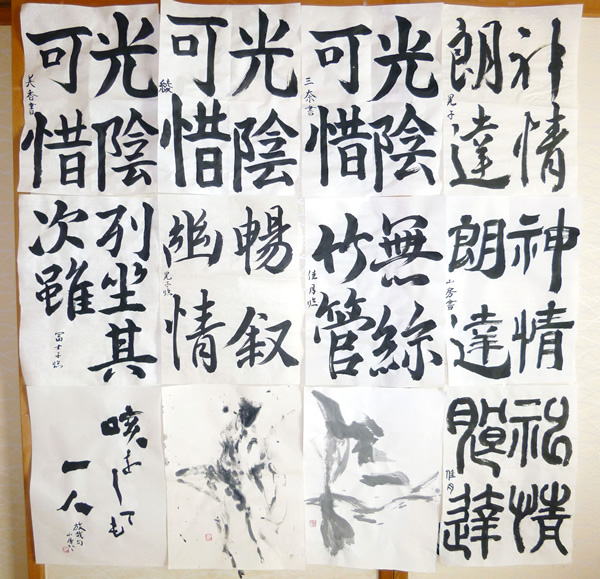 光陰
可惜
光陰
可惜
綾
光陰
可惜
三奈書
神情
朗達
晃子
列坐其
次雖
冨士子臨
暢叙
幽情
晃子臨
無絲
竹管
佳月臨
神情
朗達
山房書
咳をしても
一人
放哉句
神情
朗達